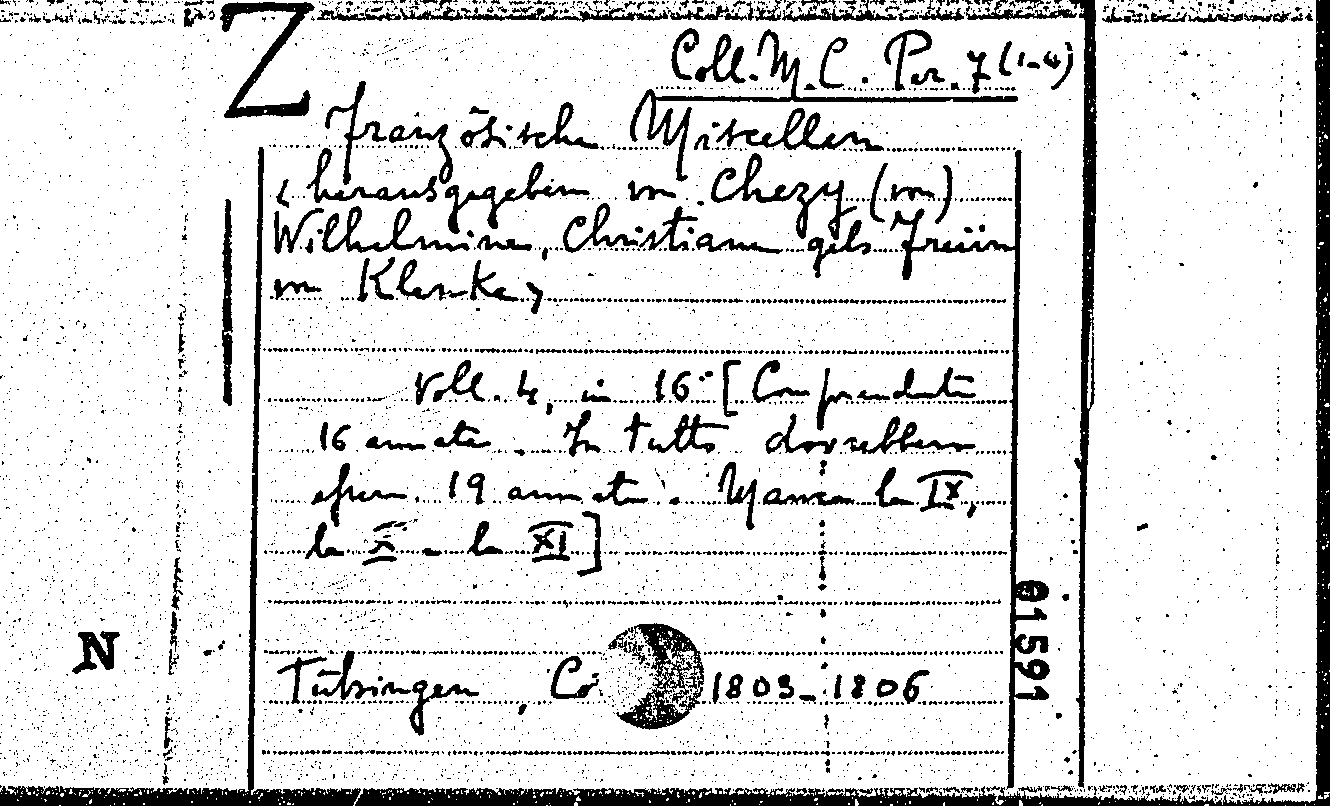 Z
Coll. M. C. Per. 7 (1-4)
Französische Miscellen
< herausgegeben von Chezy (von)
Wilhelmine, Christiane geb. Freiin
von Klenke >
Voll. 4, in 16° [Comprendente
16 annate. In tutto dovrebbero
essere 19 annate. Manca la IX,
la X e la XI]
N
01591
Tübingen, Co 1803-1806